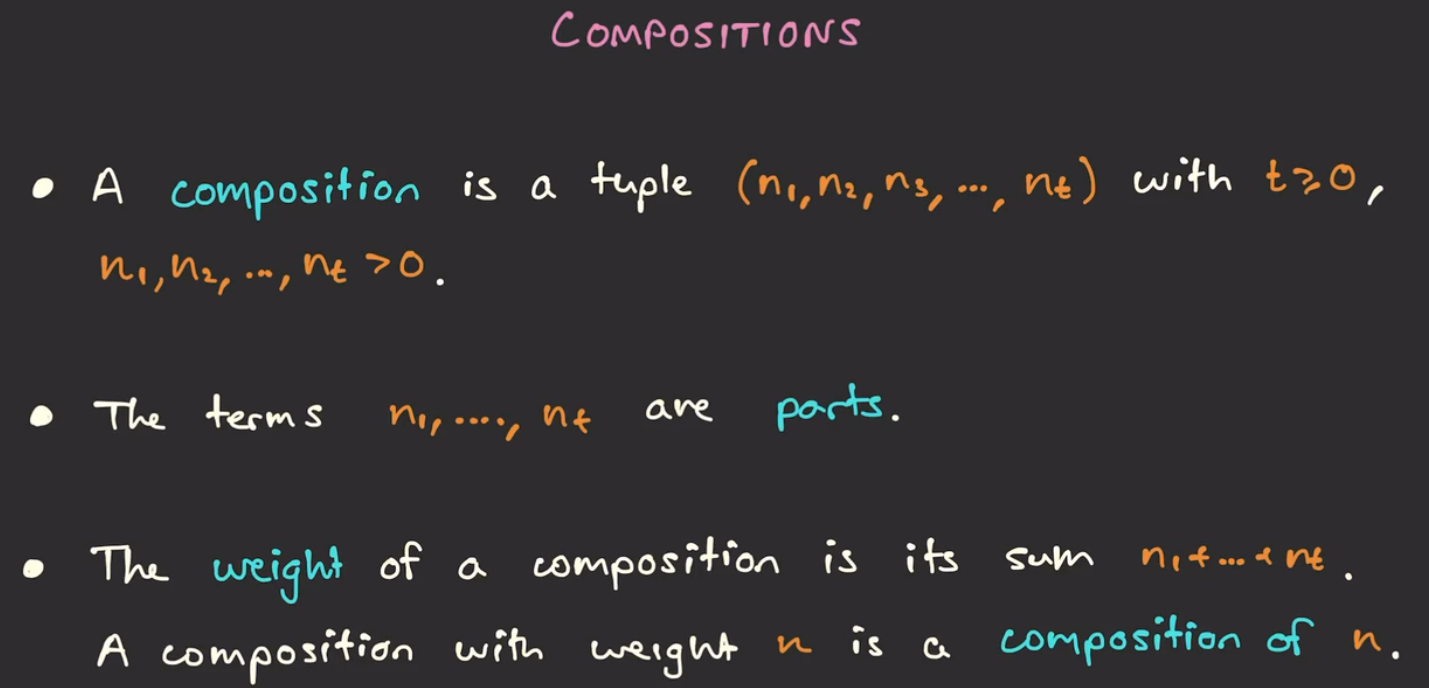 COMPOSITIONS
• A composition is a tuple (n₁, n₂, n₃, ..., nₜ) with t ⩾ 0,
n₁, n₂, ..., nₜ > 0.
• The terms n₁, ...., nₜ are parts.
• The weight of a composition is its sum n₁ + ... + nₜ.
A composition with weight n is a composition of n.